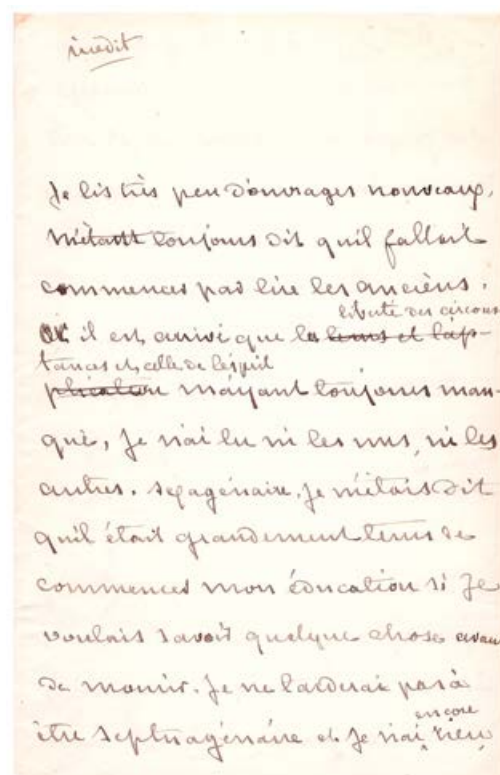 inédit
Je lis très peu d'ouvrages nouveaux,
m'étant toujours dit qu'il fallait
commencer par lire les anciens.
liberté des circons
Or il est arrivé que la temps et l'ap-
tances et celle de l'esprit
plication m'ayant toujours man-
qué, je n'ai lu ni les uns, ni les
autres. sexagénaire, je m'étais dit
qu'il était grandement tems de
commencer mon éducation si je
voulais savoir quelque chose avan
de mourir. Je ne tarderai pas à
encore
être septuagénaire et je n'ai rien